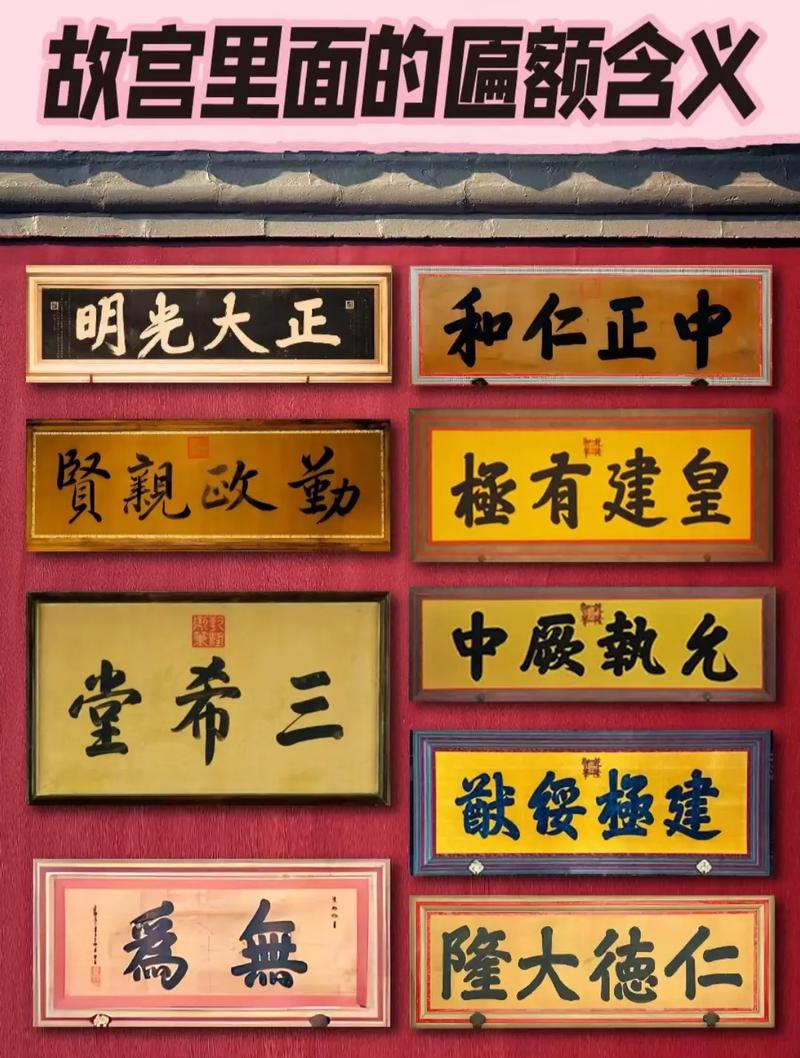 故宫里面的匾额含义
正大光明
中正仁和
勤政親賢
皇建有極
三希堂
允執厥中
建極綏猷
無為
仁德大隆